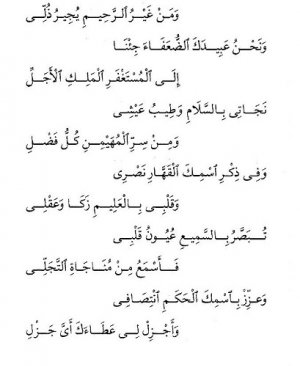 وَمَنْ غَيْرُ ٱلرَّحِيمِ يُجِيرُ ذُلِّى
وَنَحْنُ عَبِيدُكَ ٱلضُّعَفَاءَ جِئْنَا
إِلَى ٱلْمُسْتَغْفَرِ ٱلْمَلِكِ ٱلْأَجَلِّ
نَجَاتِى بِٱلسَّلَامِ وَطِيبُ عَيْشِى
وَمِنْ سِرِّ ٱلْمُهَيْمِنِ كُلُّ فَضْلِ
وَفِى ذِكْرِ ٱسْمِكَ ٱلْقَهَّارِ نَصْرِى
وَقَلْبِى بِٱلْعَلِيمِ زَكَا وَعَقْلِى
تُبَصَّرُ بِٱلسَّمِيعِ عُيُونُ قَلْبِى
فَأَسْمَعُ مِنْ مُنَاجَاةِ ٱلتَّجَلِّى
وَعَزِّزْ بِٱسْمِكَ ٱلْحَكَمِ ٱنْتِصَافِى
وَأَجْزِلْ لِى عَطَاءَكَ أَىَّ جَزْلِ